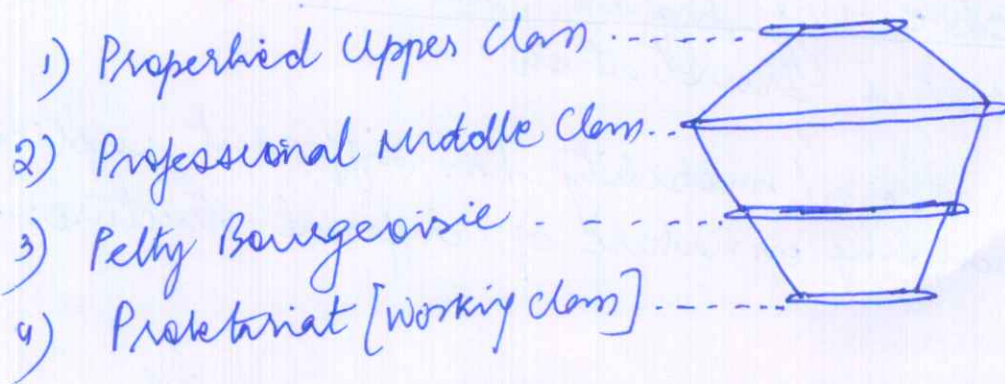 1) Propertied Upper Class
2) Professional Middle Class
3) Petty Bourgeoisie
4) Proletariat [Working class]